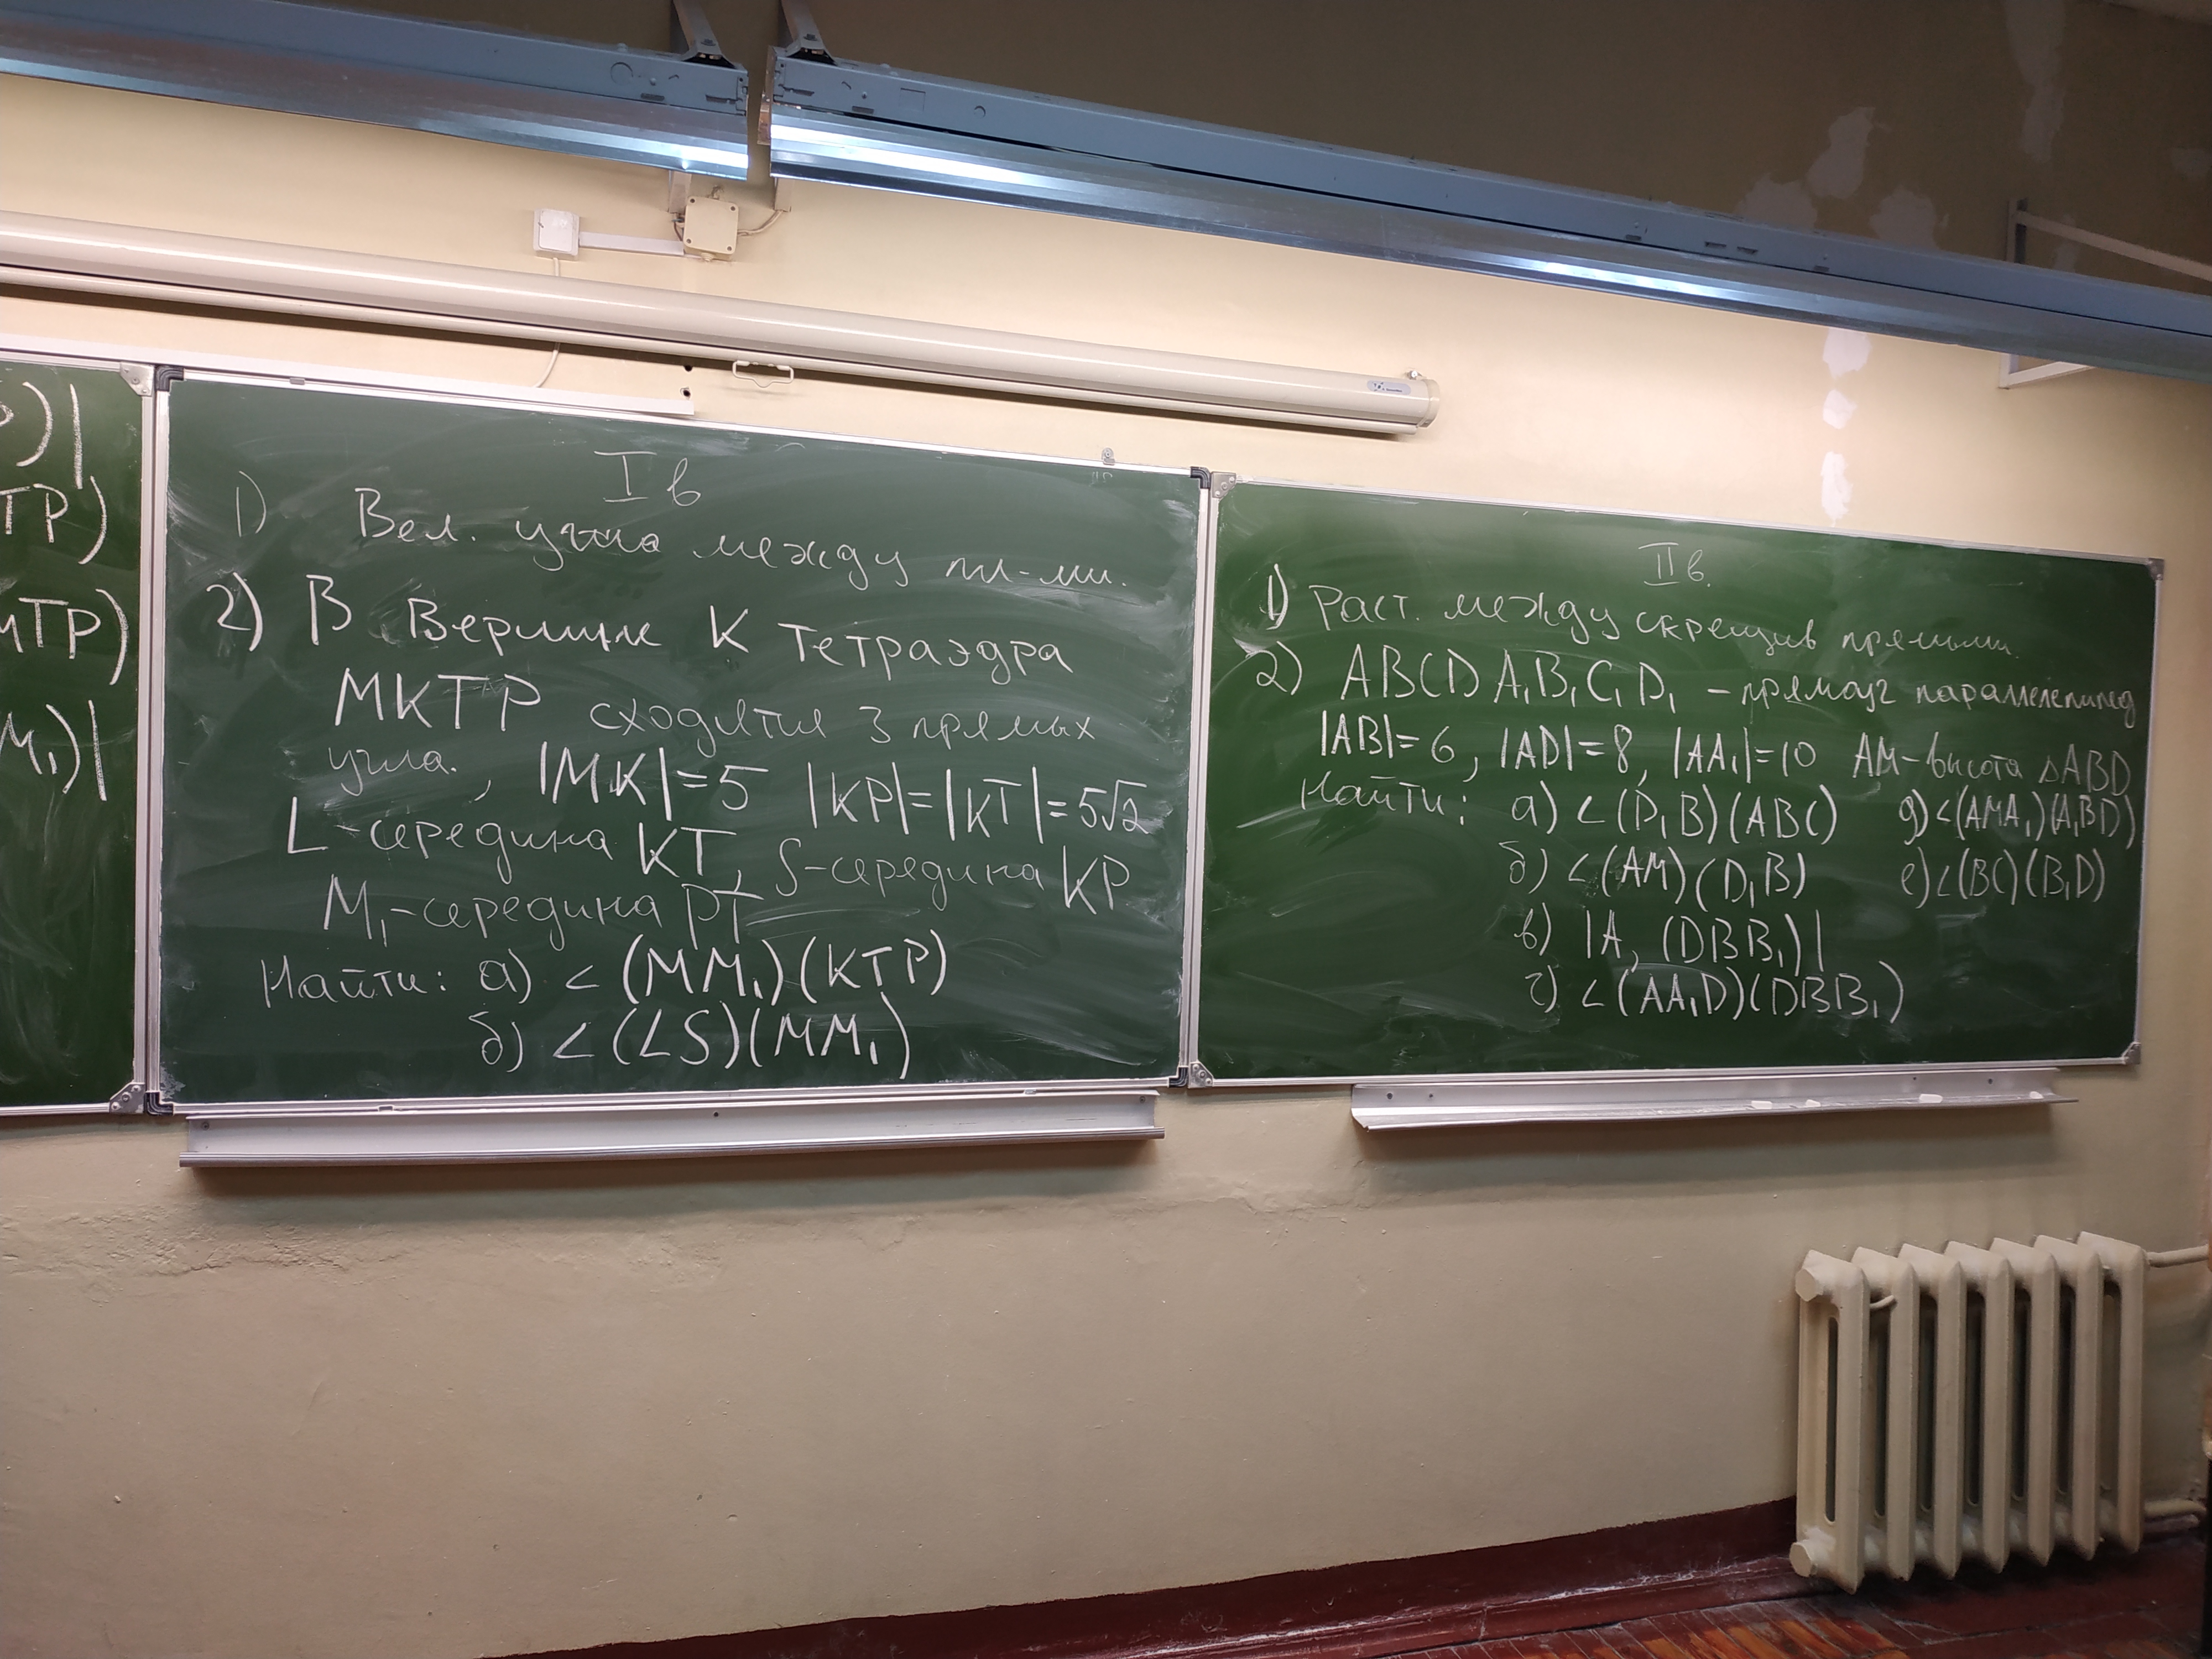 )|
TP)
MTP)
M₁)|
I в
1) Вел. угла между пл-ми.
2) В вершине K тетраэдра
MKTP сходятся 3 прямых
угла., |MK|=5 |KP|=|KT|=5√2
L-середина KT, S-середина KP
M₁-середина PT
Найти: а) ∠(MM₁)(KTP)
б) ∠(LS)(MM₁)
II в.
1) Раст. между скрещив прямыми.
2) ABCDA₁B₁C₁D₁ - прямоуг параллелепипед
|AB|=6, |AD|=8, |AA₁|=10 AM-высота △ABD
Найти: а) ∠(D₁B)(ABC) д) ∠(AMA₁)(A₁BD)
б) ∠(AM)(D₁B) е) ∠(BC)(B₁D)
в) |A, (DBB₁)|
г) ∠(AA₁D)(DBB₁)